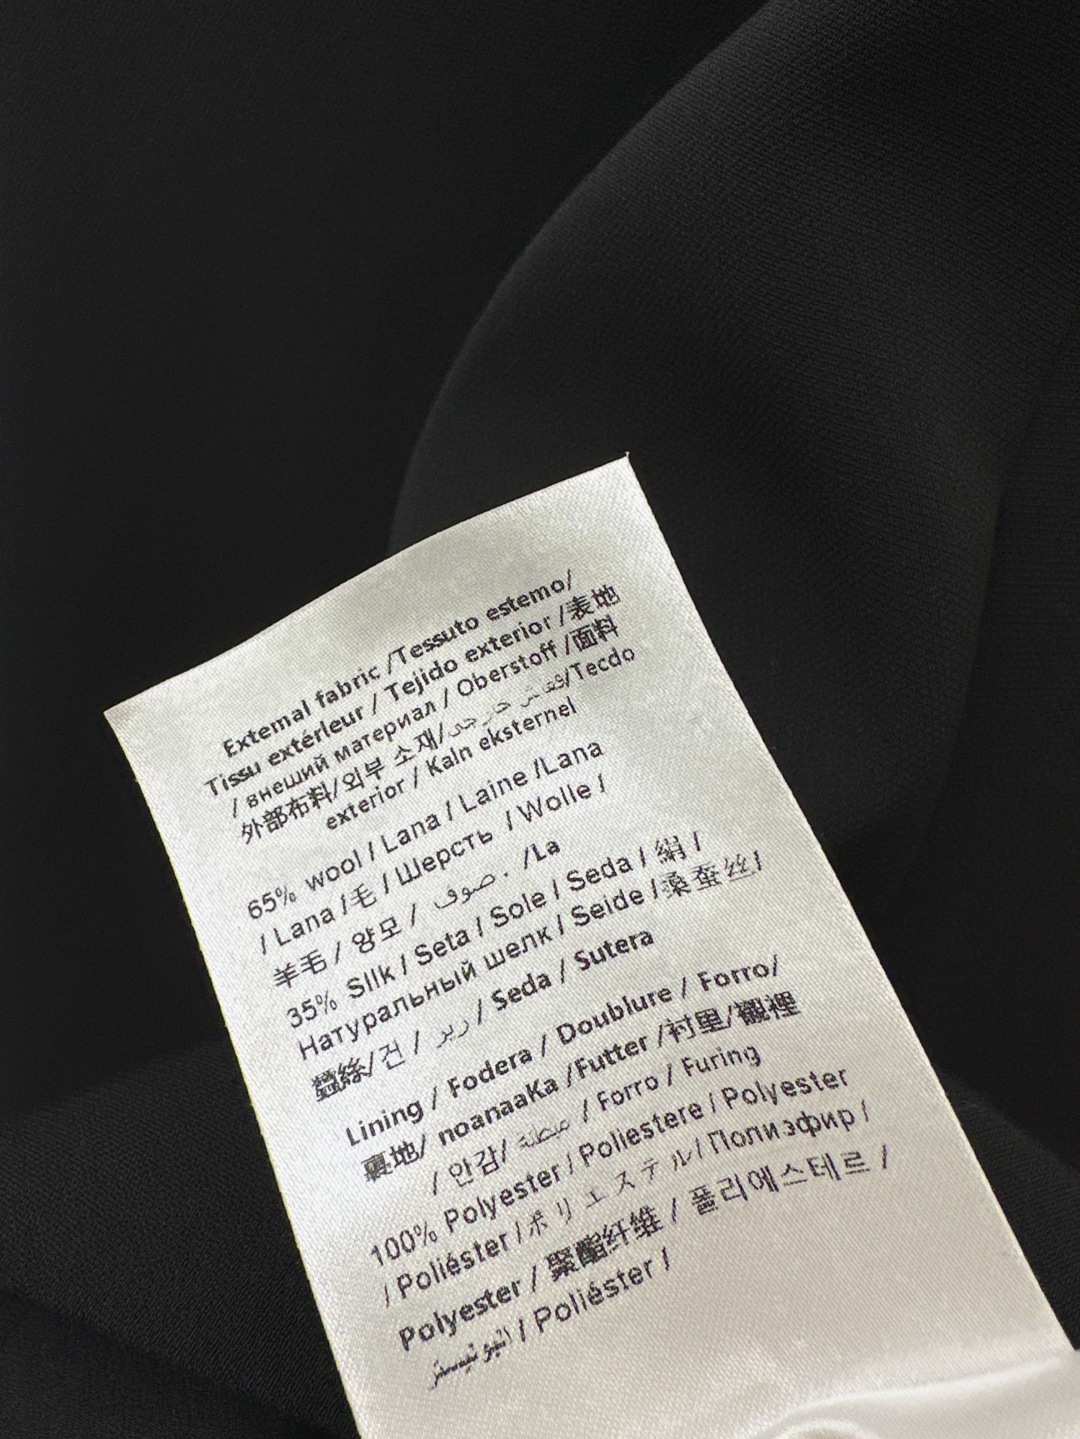 Extemal fabric /Tessuto estemo/
Tissu extérleur / Tejido exterior /表地
/ внеший материал / Oberstoff /面料
外部布料/외부 소재/قماش خارجى/Tecdo
exterior / Kaln eksternel
65% wool / Lana / Laine /Lana
/ Lana /毛 / Шерсть / Wolle /
羊毛 / 양모 / صوف . /La
35% Sllk / Seta / Sole / Seda / 絹 /
Натуральный шелк / Seide /桑蚕丝/
蠶絲/건 / / Seda / Sutera
Lining / Fodera / Doublure / Forro/
裏地/ noanaaKa /Futter /衬里/襯裡
/ 안감/ / Forro / Furing
100% Polyester / Poliestere / Polyester
/ Poliéster /ポリエステル/ Полиэфир /
Polyester / 聚酯纤维 / 폴리에스테르 /
/ Poliéster /